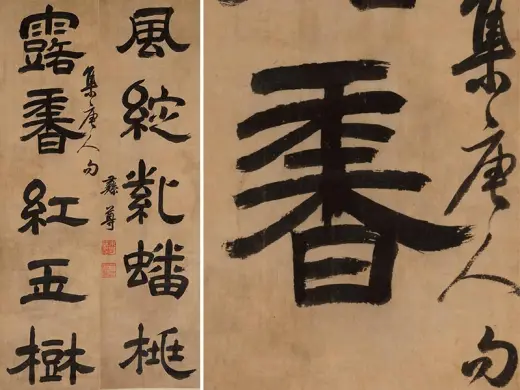 集唐人句
露香紅玉樹
風綻紫蟠桃
彝尊
香
集唐人句